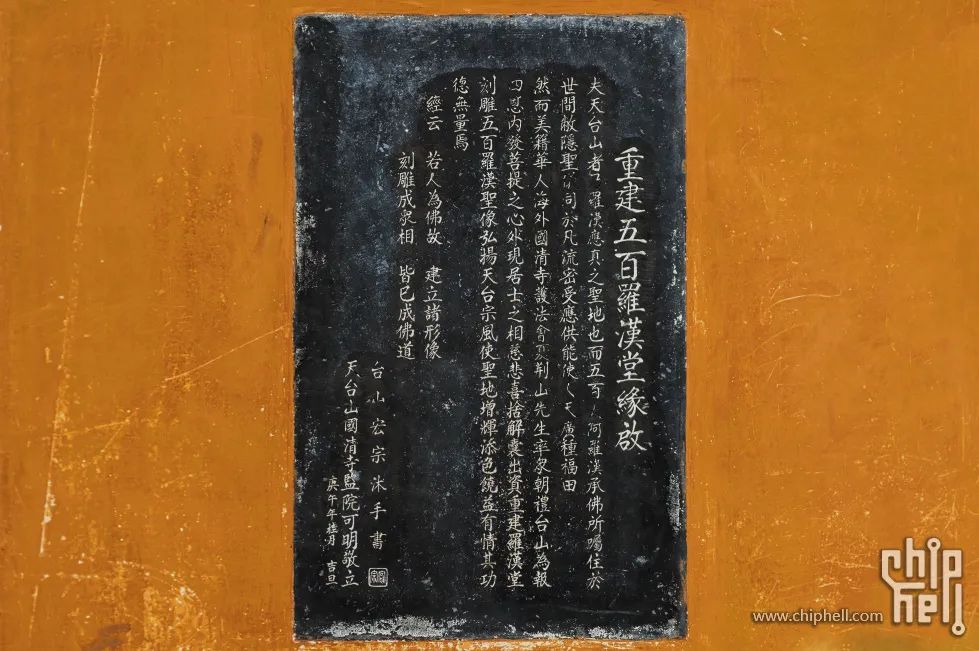 重建五百羅漢堂緣啟
夫天台山者 羅漢應真之聖地也而五百 阿羅漢承佛所囑住於
世間蔽隱聖 同於凡流密受應供能使人天廣種福田
然而美籍華人海外國清寺護法會 荆山先生率衆朝禮台山為報
四恩內發菩提之心外現居士之相慈悲喜捨解囊出資重建羅漢堂
刻雕五百羅漢聖像弘揚天台宗風使聖地增輝添色饒益有情其功
德無量焉
經云 若人為佛故 建立諸形像
刻雕成衆相 皆已成佛道
台山宏宗沐手書
天台山國清寺監院可明敬立
庚午年桂月 吉旦
www.chiphell.com
chip
hell